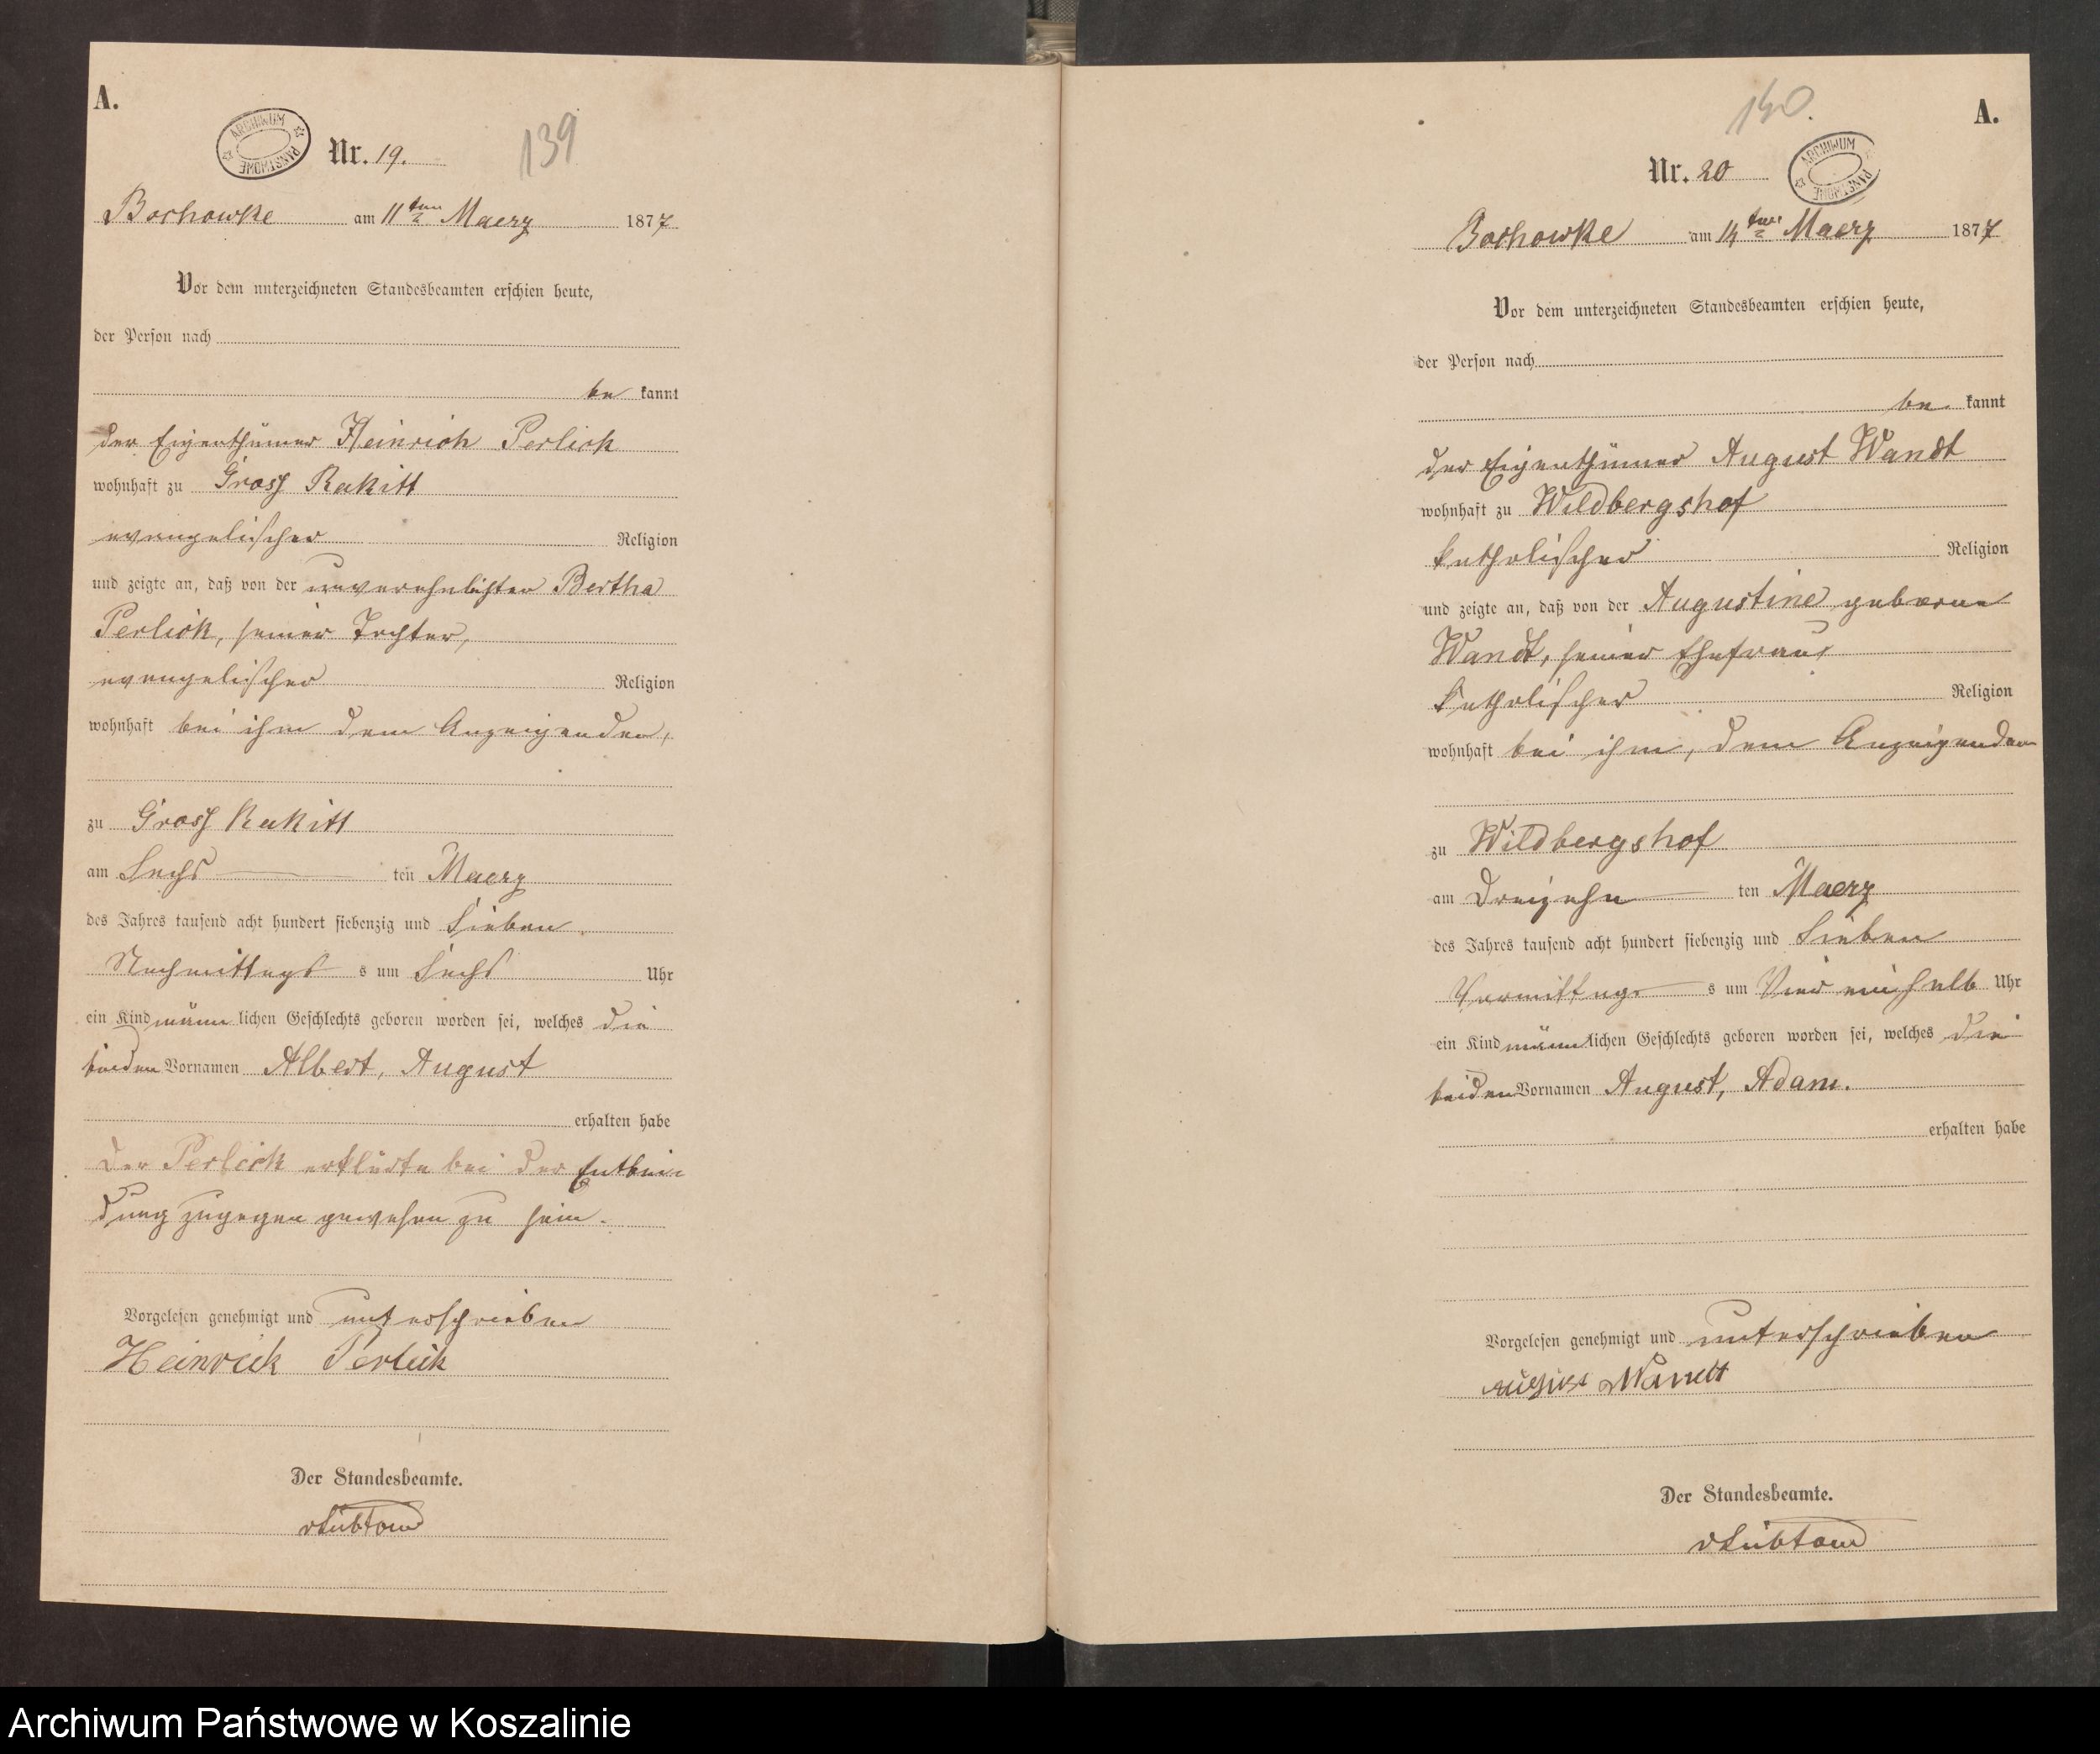 A.
ARCHIWUM PAŃSTWOWE
Nr. 19.
139
Bochowke am 11ten Maerz 1877
Vor dem unterzeichneten Standesbeamten erschien heute,
der Person nach
be kannt
der Eigenthümer Heinrich Perlick
wohnhaft zu Gross Rakitt
evangelischer Religion
und zeigte an, daß von der unverehelichten Bertha
Perlick, seiner Tochter,
evangelischer Religion
wohnhaft bei ihm dem Anzeigenden,
zu Gross Rakitt
am Sechs ten Maerz
des Jahres tausend acht hundert siebenzig und Sieben
Nachmittags s um Sechs Uhr
ein Kind männ lichen Geschlechts geboren worden sei, welches die
beiden Vornamen Albert, August
erhalten habe
Der Perlick erklärte bei der Entbin
dung zugegen gewesen zu sein.
Vorgelesen genehmigt und unterschrieben
Heinrick Perlick
Der Standesbeamte.
140.
A.
Nr. 20
ARCHIWUM PAŃSTWOWE
Bochowke am 14ten Maerz 1877
Vor dem unterzeichneten Standesbeamten erschien heute,
der Person nach
be kannt
der Eigenthümer August Wandt
wohnhaft zu Wildbergshof
katholischer Religion
und zeigte an, daß von der Augustine geborne
Wandt, seiner Ehefrau
katholischer Religion
wohnhaft bei ihm, dem Anzeigenden
zu Wildbergshof
am Dreizehn ten Maerz
des Jahres tausend acht hundert siebenzig und Sieben
Vormittags s um Vier einhalb Uhr
ein Kind männ lichen Geschlechts geboren worden sei, welches die
beiden Vornamen August, Adam.
erhalten habe
Vorgelesen genehmigt und unterschrieben
August Wandt
Der Standesbeamte.
Archiwum Państwowe w Koszalinie